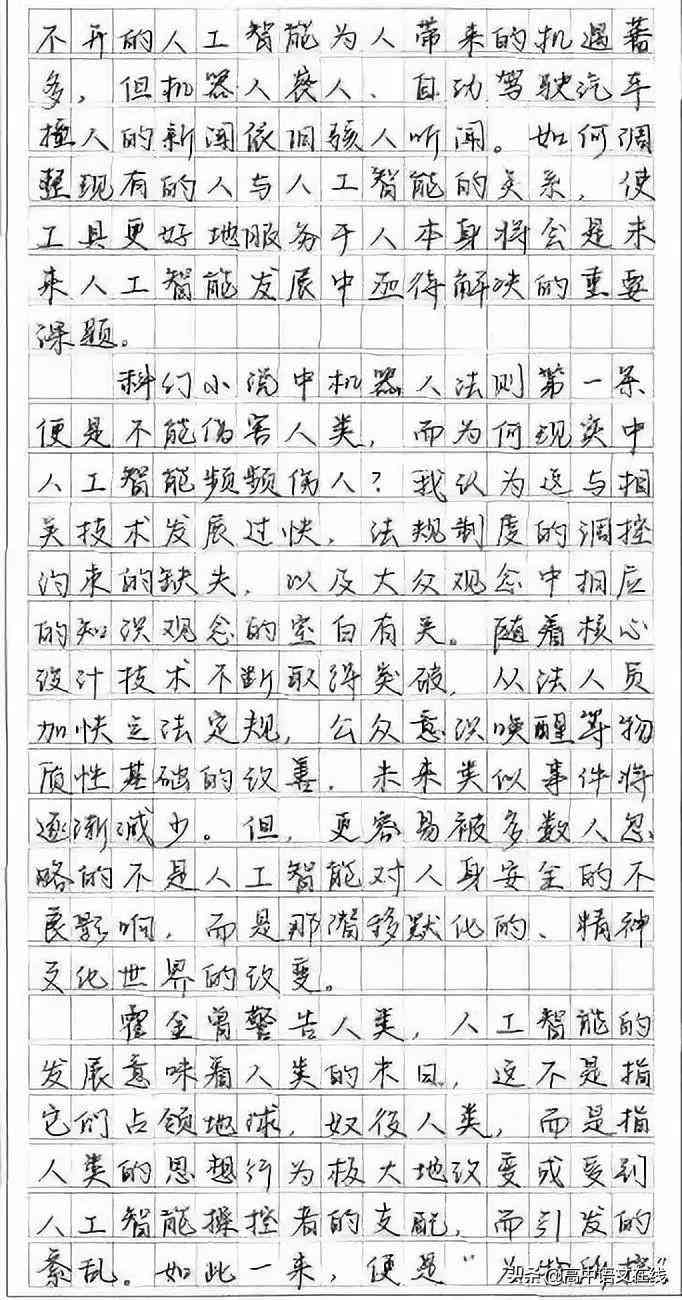 不开的人工智能为人带来的机遇蕃
多，但机器人丧人、自动驾驶汽车
撞人的新闻依旧骇人听闻。如何调
整现有的人与人工智能的关系，使
工具更好地服务于人本身将会是未
来人工智能发展中亟待解决的重要
课题。
科幻小说中机器人法则第一条
便是不能伤害人类，而为何现实中
人工智能频频伤人？我认为这与相
关技术发展过快，法规制度的调控
约束的缺失，以及大众观念中相应
的知识观念的空白有关。随着核心
设计技术不断取得突破，从法人员
加快立法定规，公众意识唤醒等物
质性基础的改善，未来类似事件将
逐渐减少。但，更容易被多数人忽
略的不是人工智能对人身安全的不
良影响，而是那潜移默化的、精神
文化世界的改变。
霍金曾警告人类，人工智能的
发展意味着人类的末日，这不是指
它们占领地球，奴役人类，而是指
人类的思想行为极大地改变或受到
人工智能操控者的支配，而引发的
紊乱。如此一来，便是“
头条@高中语文在线